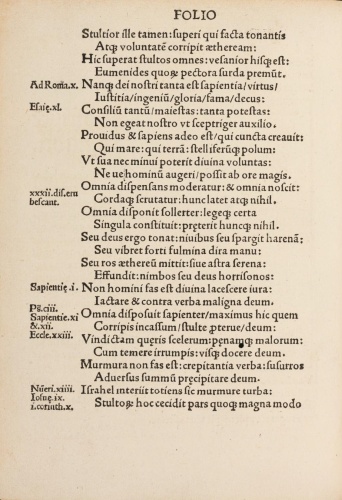 FOLIO
Stultior ille tamen: superi qui facta tonantis
Atq; voluntatē corripit ætheream:
Hic superat stultos omnes: vesanior hisq; est:
Eumenides quoq; pectora surda premūt.
Ad Roma.x. Nanq; dei nostri tanta est sapientia/virtus/
Iustitia/ingeniū/gloria/fama/decus:
Esaię.xl. Consiliū tantū/maiestas: tanta potestas:
Non egeat nostro vt sceptriger auxilio.
Prouidus & sapiens adeo est/qui cuncta creauit:
Qui mare: qui terrā: stelliferūq; polum:
Vt sua nec minui poterit diuina voluntas:
Ne ue hominū augeri/possit ab ore magis.
xxxii.dis.eru Omnia dispensans moderatur: & omnia noscit:
bescant. Cordaq; scrutatur: hunc latet atq; nihil.
Omnia disponit sollerter: legeq; certa
Singula constituit: pręterit huncq; nihil.
Seu deus ergo tonat: niuibus seu spargit harenā:
Seu vibret forti fulmina dira manu:
Seu ros æthereū mittit: siue astra serena:
Effundit: nimbos seu deus horrisonos:
Sapientię.i. Non homini fas est diuina lacessere iura:
Iactare & contra verba maligna deum.
Ps.ciii.
Sapientie.xi Omnia disposuit sapienter/maximus hic quem
&.xii. Corripis incassum/stulte pterue/deum:
Eccle.xxiii. Vindictam queris scelerum: pęnamq; malorum:
Cum temere irrumpis: visq; docere deum.
Murmura non fas est: crepitantia verba: susurros
Aduersus summū pręcipitare deum.
Nūeri.xiiii. Israhel interiit totiens sic murmure turba:
Iosuę.ix.
i.corinth.x. Stultoq; hoc cecidit pars quoq; magna modo